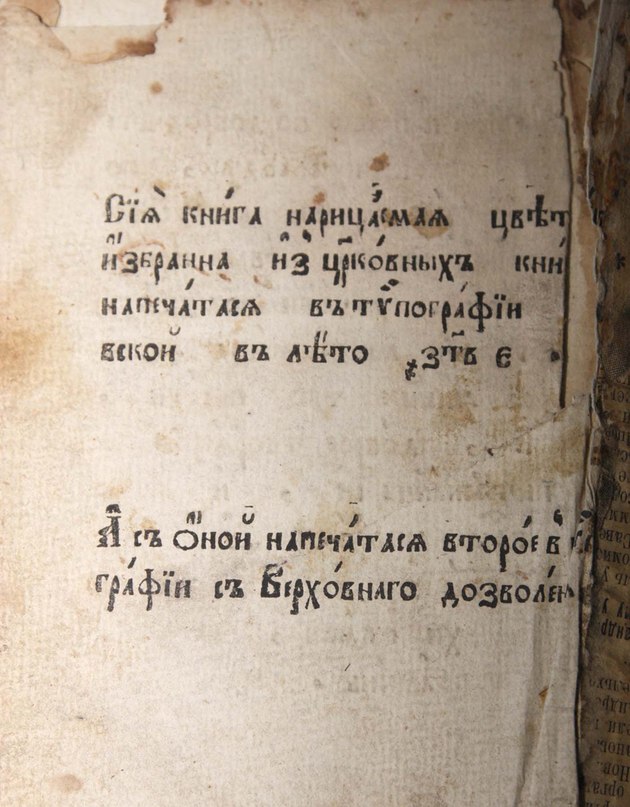 Сїѧ̀ кни́га нарица́емая цвѣт
и҆збранна и҆з̾ цр҃ко́вныхъ кни́
напеча́тася въ тѷпогра́фїи
вской въ лѣ́то ҂зт҃в е
А҆ съ ѻ҆ной напеча́тася второ́е в
гра́фїи съ Верхо́внаго дозволе́н